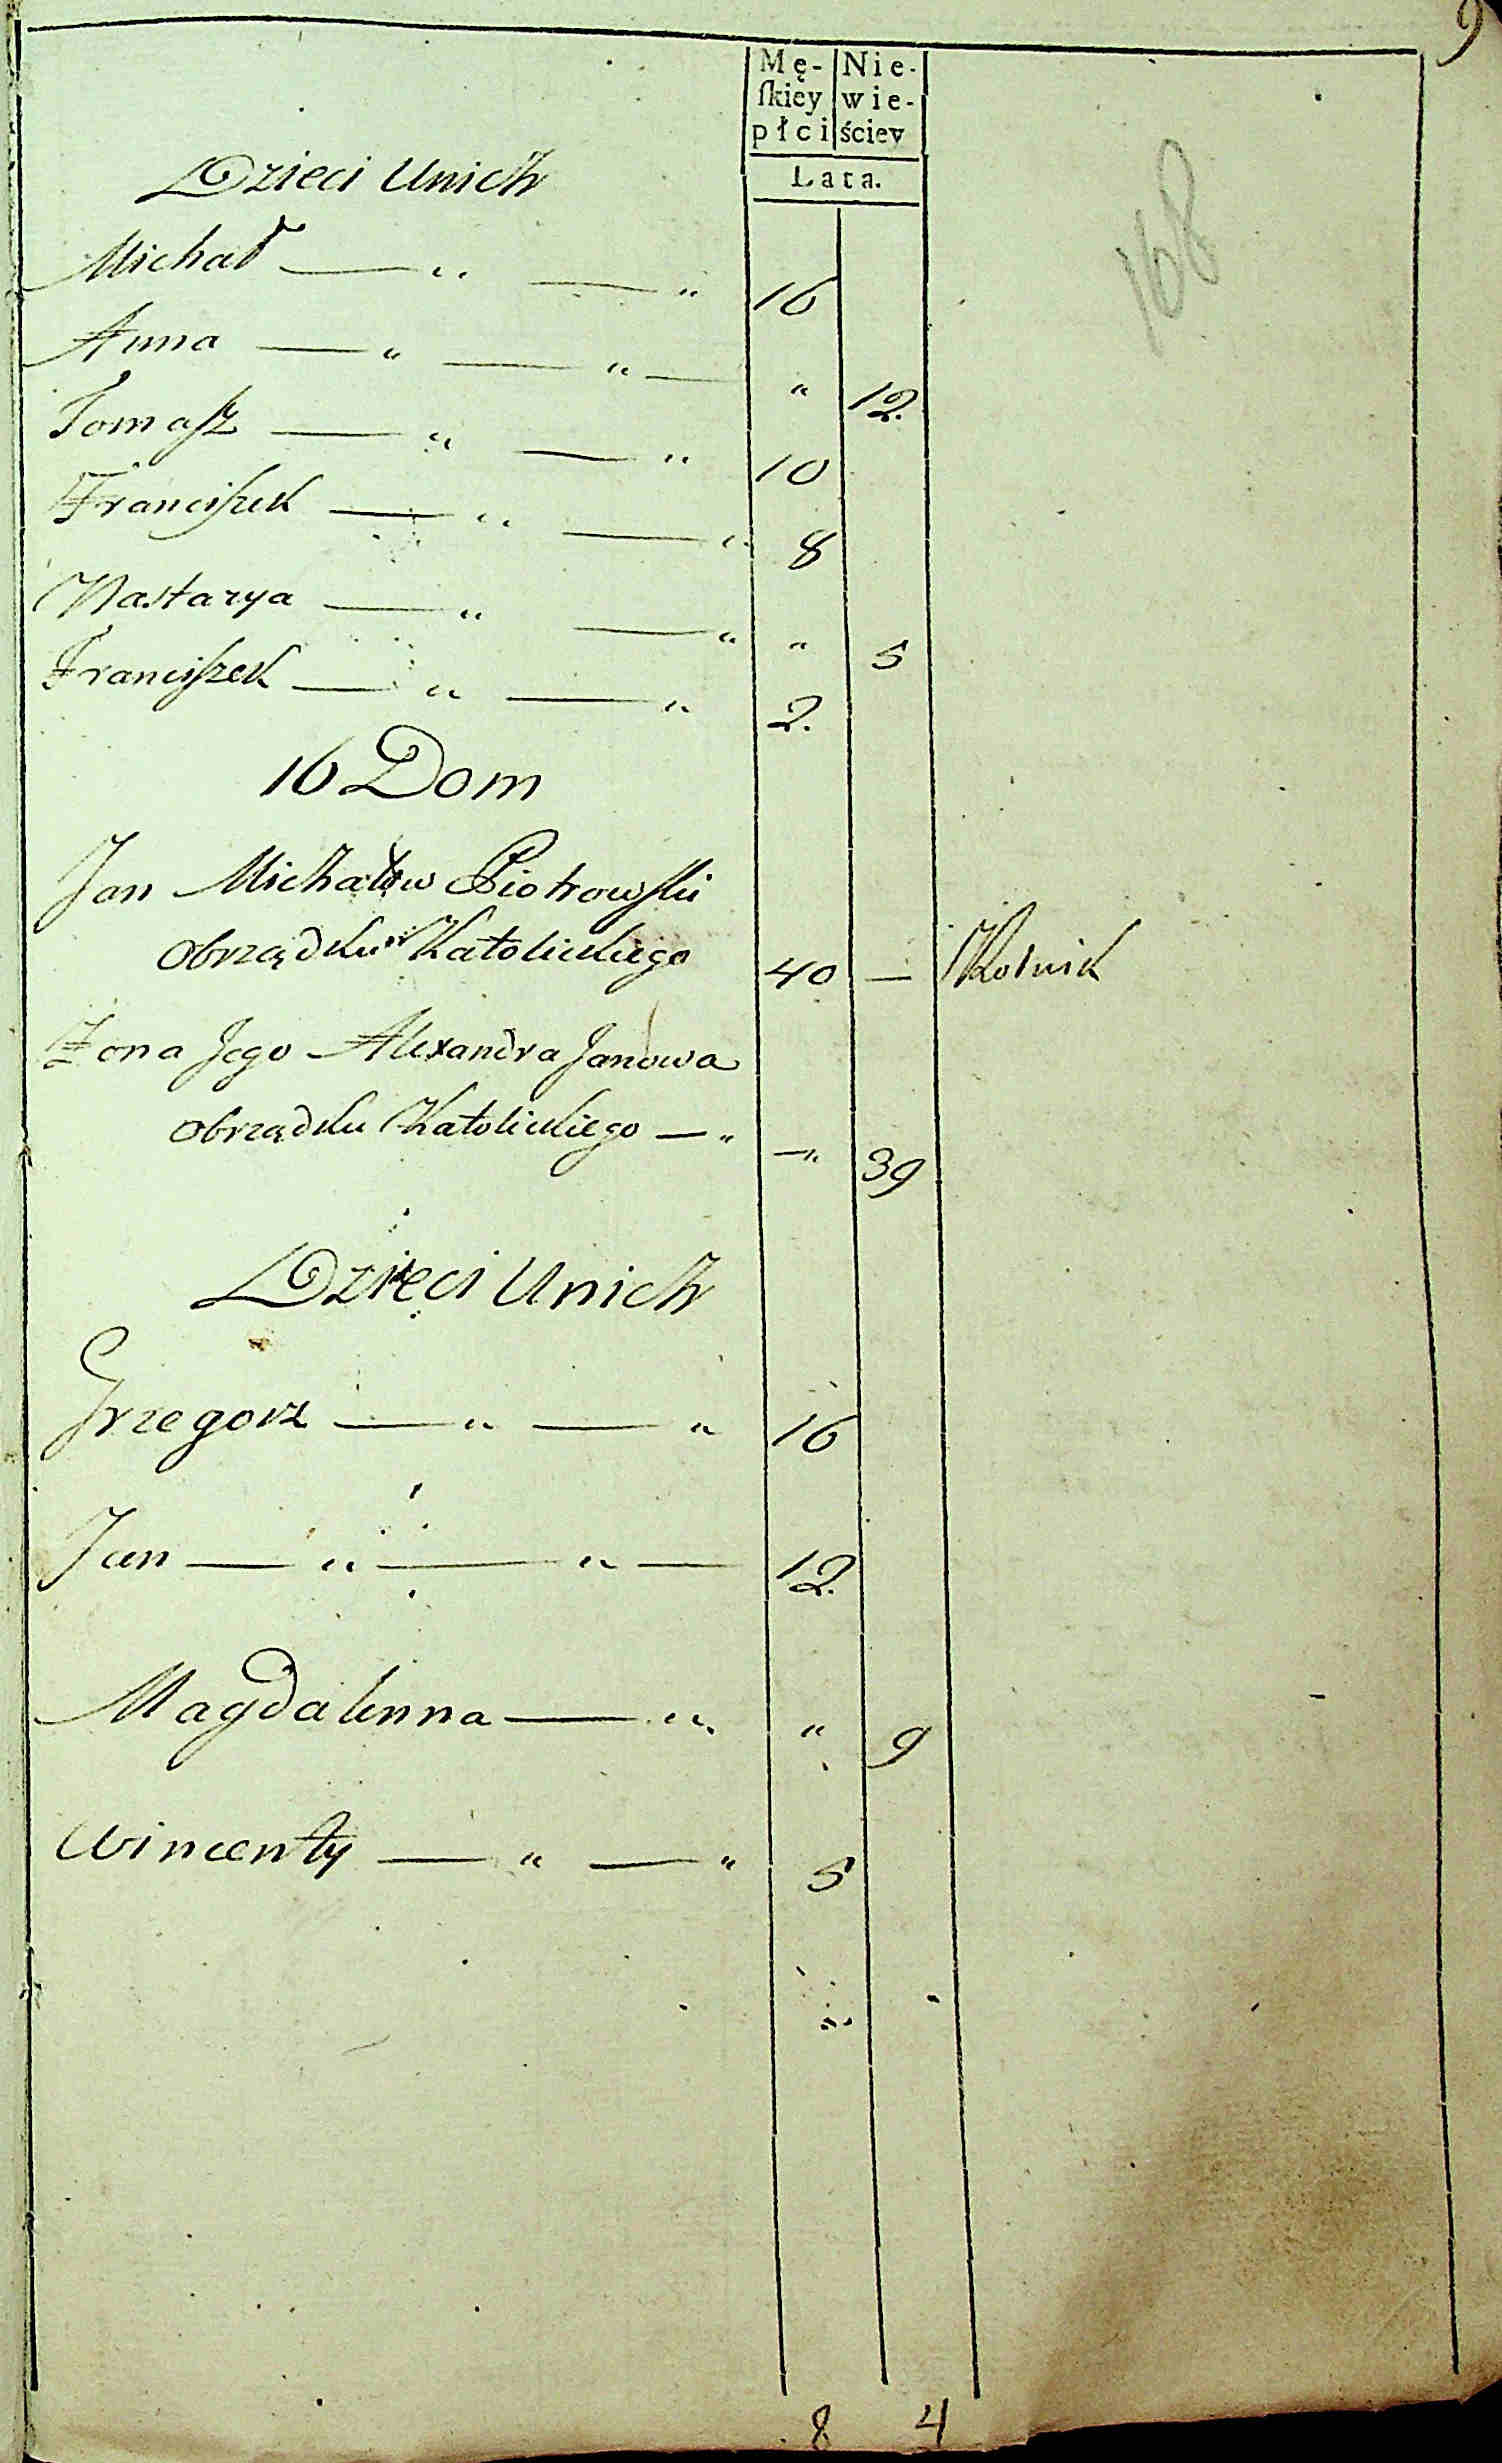 9
Mę- Nie-
ſkiey wie-
płci ściey
Lata.
168
Dzieci Unich
Michał — " — " 16
Anna — " — " — " 12.
Tomaſz — " — " 10
Franciſzek — " — " 8
Nastazya — " — " " 5
Franciſzek — " — " 2.
16 Dom
Jan Michałow Piotrowſki
Obrządku Katolickiego 40 — Rolnik
Żona Jego Alexandra Janowa
Obrządku Katolickiego — " —" 39
Dzieci Unich
Grzegorz — " — " 16
Jan — " — " — 12.
Magdalenna — " " 9
Wincenty — " — " 5
8 4